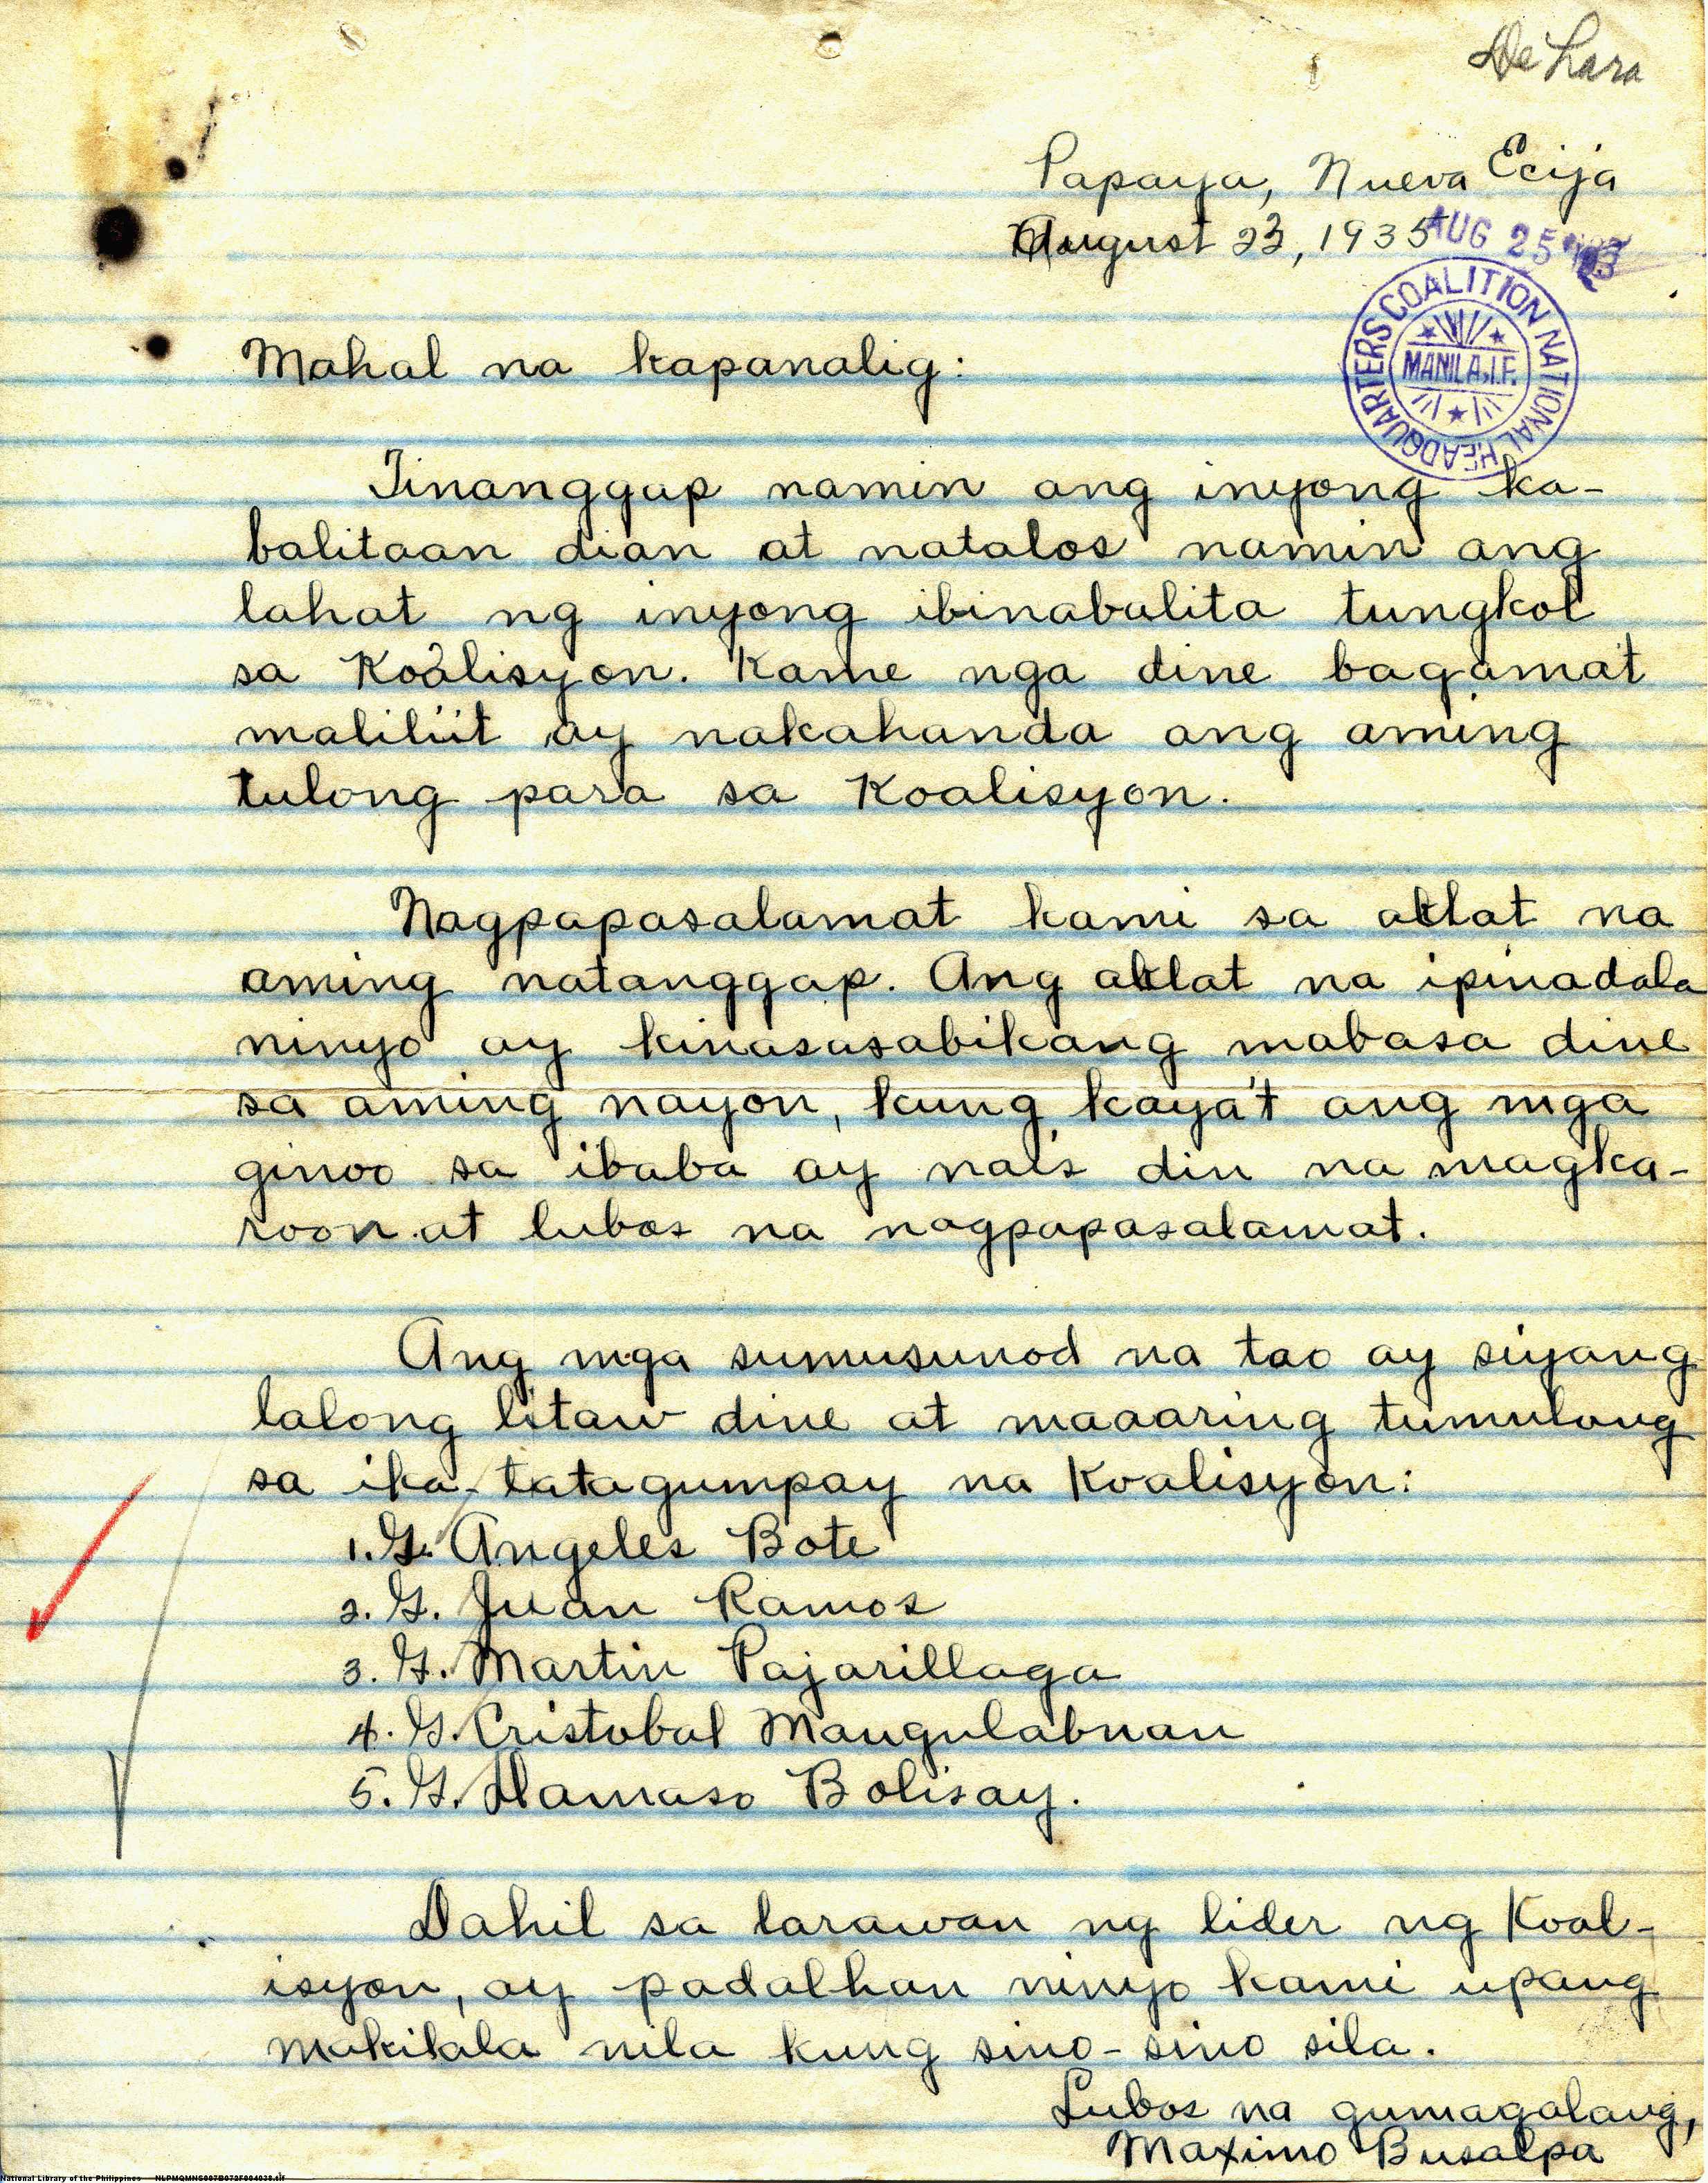 De Lara
Papaya, Nueva Ecija
August 23, 1935
AUG 25
COALITION NATIONAL HEADQUARTERS
MANILA, I.F.
Mahal na kapanalig:
Tinanggap namin ang inyong ka-
balitaan dian at natalos namin ang
lahat ng inyong ibinabalita tungkol
sa Koalisyon. Kame nga dine bagamat
maliliit ay nakahanda ang aming
tulong para sa Koalisyon.
Nagpapasalamat kami sa aklat na
aming natanggap. Ang aklat na ipinadala
ninyo ay kinasasabikang mabasa dine
sa aming nayon, kung kaya't ang mga
ginoo sa ibaba ay nais din na magka-
roon at lubos na nagpapasalamat.
Ang mga sumusunod na tao ay siyang
lalong litaw dine at maaaring tumulong
sa ika-tatagumpay na Koalisyon:
1. G. Angeles Bote
2. G. Juan Ramos
3. G. Martin Pajarillaga
4. G. Cristobal Mangulabnan
5. G. Damaso Bolisay.
Dahil sa larawan ng lider ng Koal-
isyon, ay padalhan ninyo kami upang
makilala nila kung sino-sino sila.
Lubos na gumagalang,
Maximo Busalpa
National Library of the Philippines